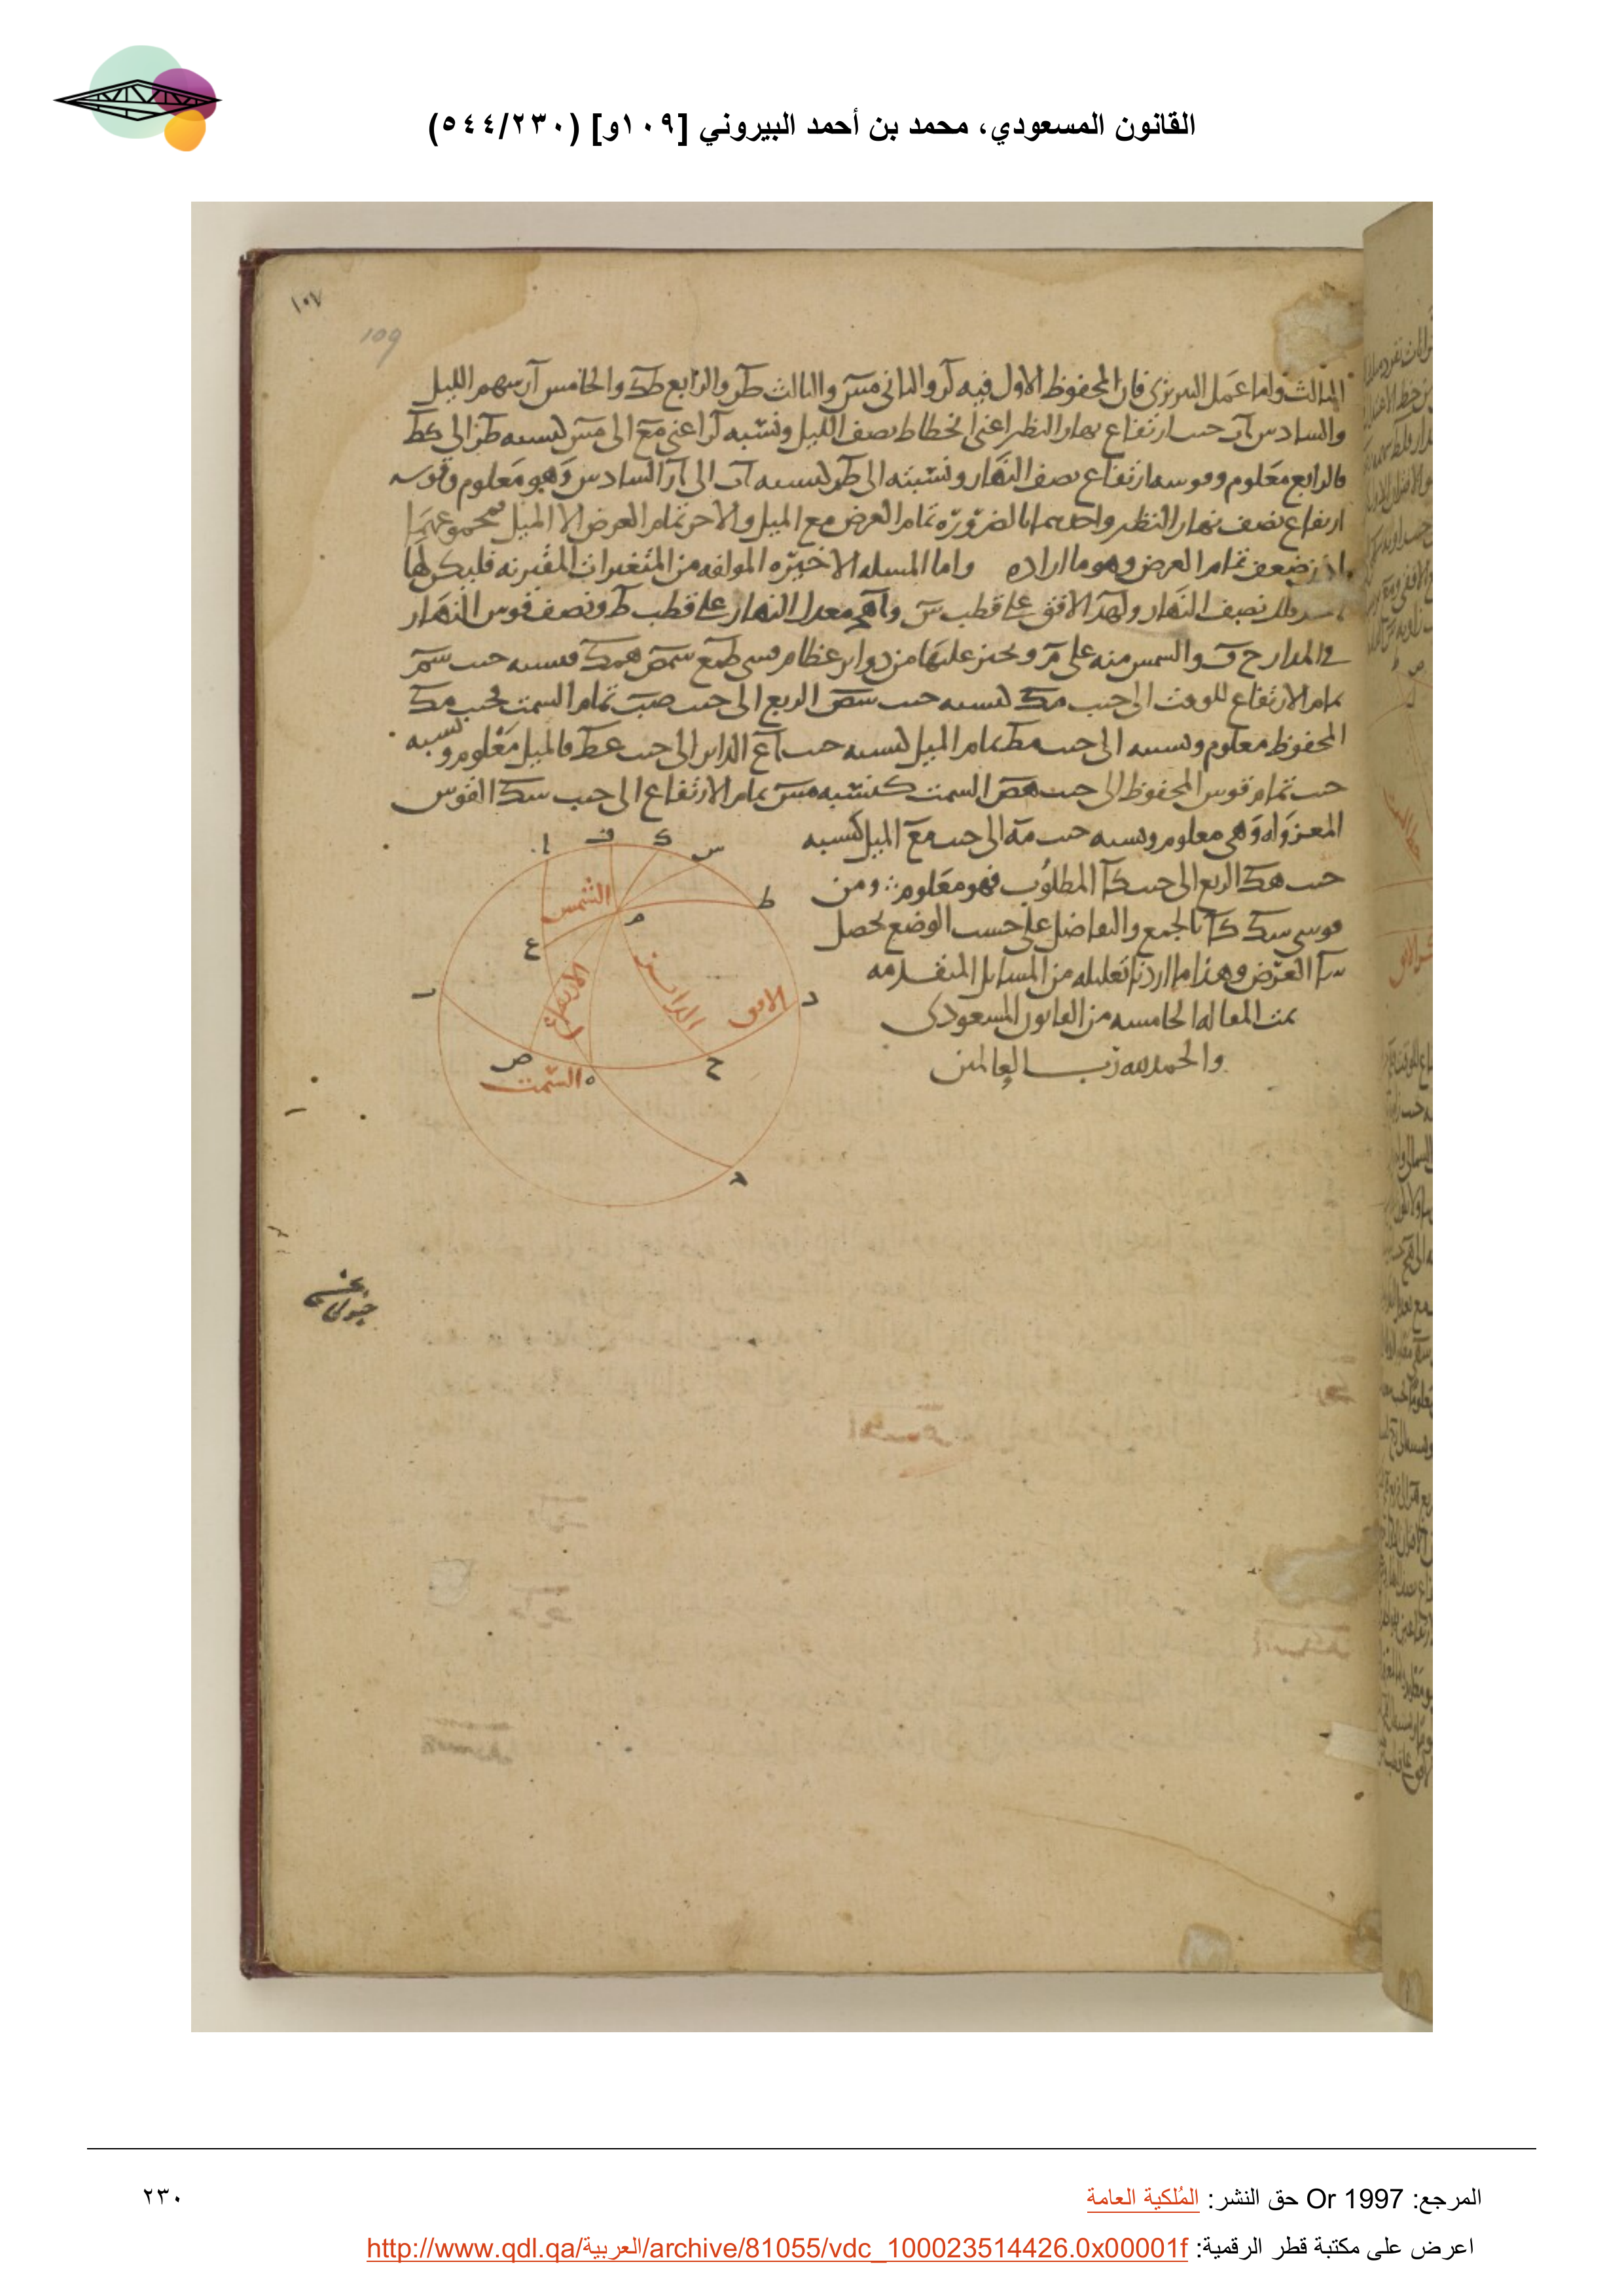 القانون المسعودي، محمد بن أحمد البيروني [١٠٩و] (٥٤٤/٢٣٠)
١٠٧
109
الثالث واما عمل النيريزي فان المحفوظ الاول فيه لر والثانى مس والثالث طر والرابع طك والخامس آر سهم الليل
والسادس آب جيب ارتفاع نهار النظير اعنى انحطاط نصف الليل ونسبه لر اعنى مع الى مس كنسبه طر الى كط
فالرابع معلوم وقوسه ارتفاع نصف النهار ونسبته الى طر كنسبه اب الى آر السادس وهو معلوم وقوسه
ارتفاع نصف نهار النظير واحدهما بالضروره تمام العرض مع الميل والاخر تمام العرض الا الميل فمجموعهما
اذن ضعف تمام العرض وهو ما اراده واما المسله الاخيره المولفه من المتغيرات المقترنه فليكن لها
نصف النهار و الافق على قطب س و معدل النهار على قطب ط ونصف قوس النهار
فى المدار ح ف والشمس منه على م ونجيز عليها من دواير عظام قسى طمع سمص همك فنسبه جيب سم
تمام الارتفاع للوقت الى جيب مك كنسبه جيب سص الربع الى جيب صب تمام السمت فجيب مك
المحفوظ معلوم ونسبته الى جيب مط تمام الميل كنسبه جيب اع الداير الى جيب عط فالميل معلوم ونسبه
جيب تمام قوس المحفوظ الى جيب هص السمت كنسبه مس تمام الارتفاع الى جيب سك القوس
المعزوله وهى معلومه ونسبه جيب مه الى جيب مع الميل كنسبه
جيب هك الربع الى جيب كا المطلوب فهو معلوم ومن
قوسى سك كا بالجمع والتفاضل على حسب الوضع يحصل
سا العرض وهذا ما اردنا تعليله من المسايل المتقدمه
تمت المقاله الخامسه من القانون المسعودى
والحمد لله رب العالمين
ا ف ك س
ط
الشمس
م
ع
ب
الارتفاع
الداير
الافق
د
ص
ه
ح
السمت
المرجع: Or 1997 حق النشر: المُلكية العامة
٢٣٠
اعرض على مكتبة قطر الرقمية: http://www.qdl.qa/العربية/archive/81055/vdc_100023514426.0x00001f